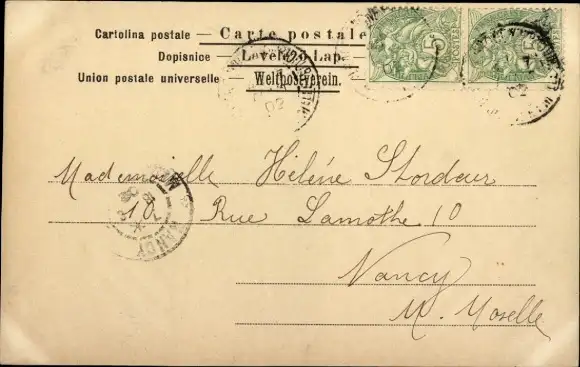 Cartolina postale — Carte postale
Dopisnice — Levelező-Lap.
Union postale universelle — Weltpostverein.
5
5
POSTES
02
02
NANCY
Mademoiselle Hélène Stordeur
10 Rue Lamothe 10
Nancy
M. Moselle